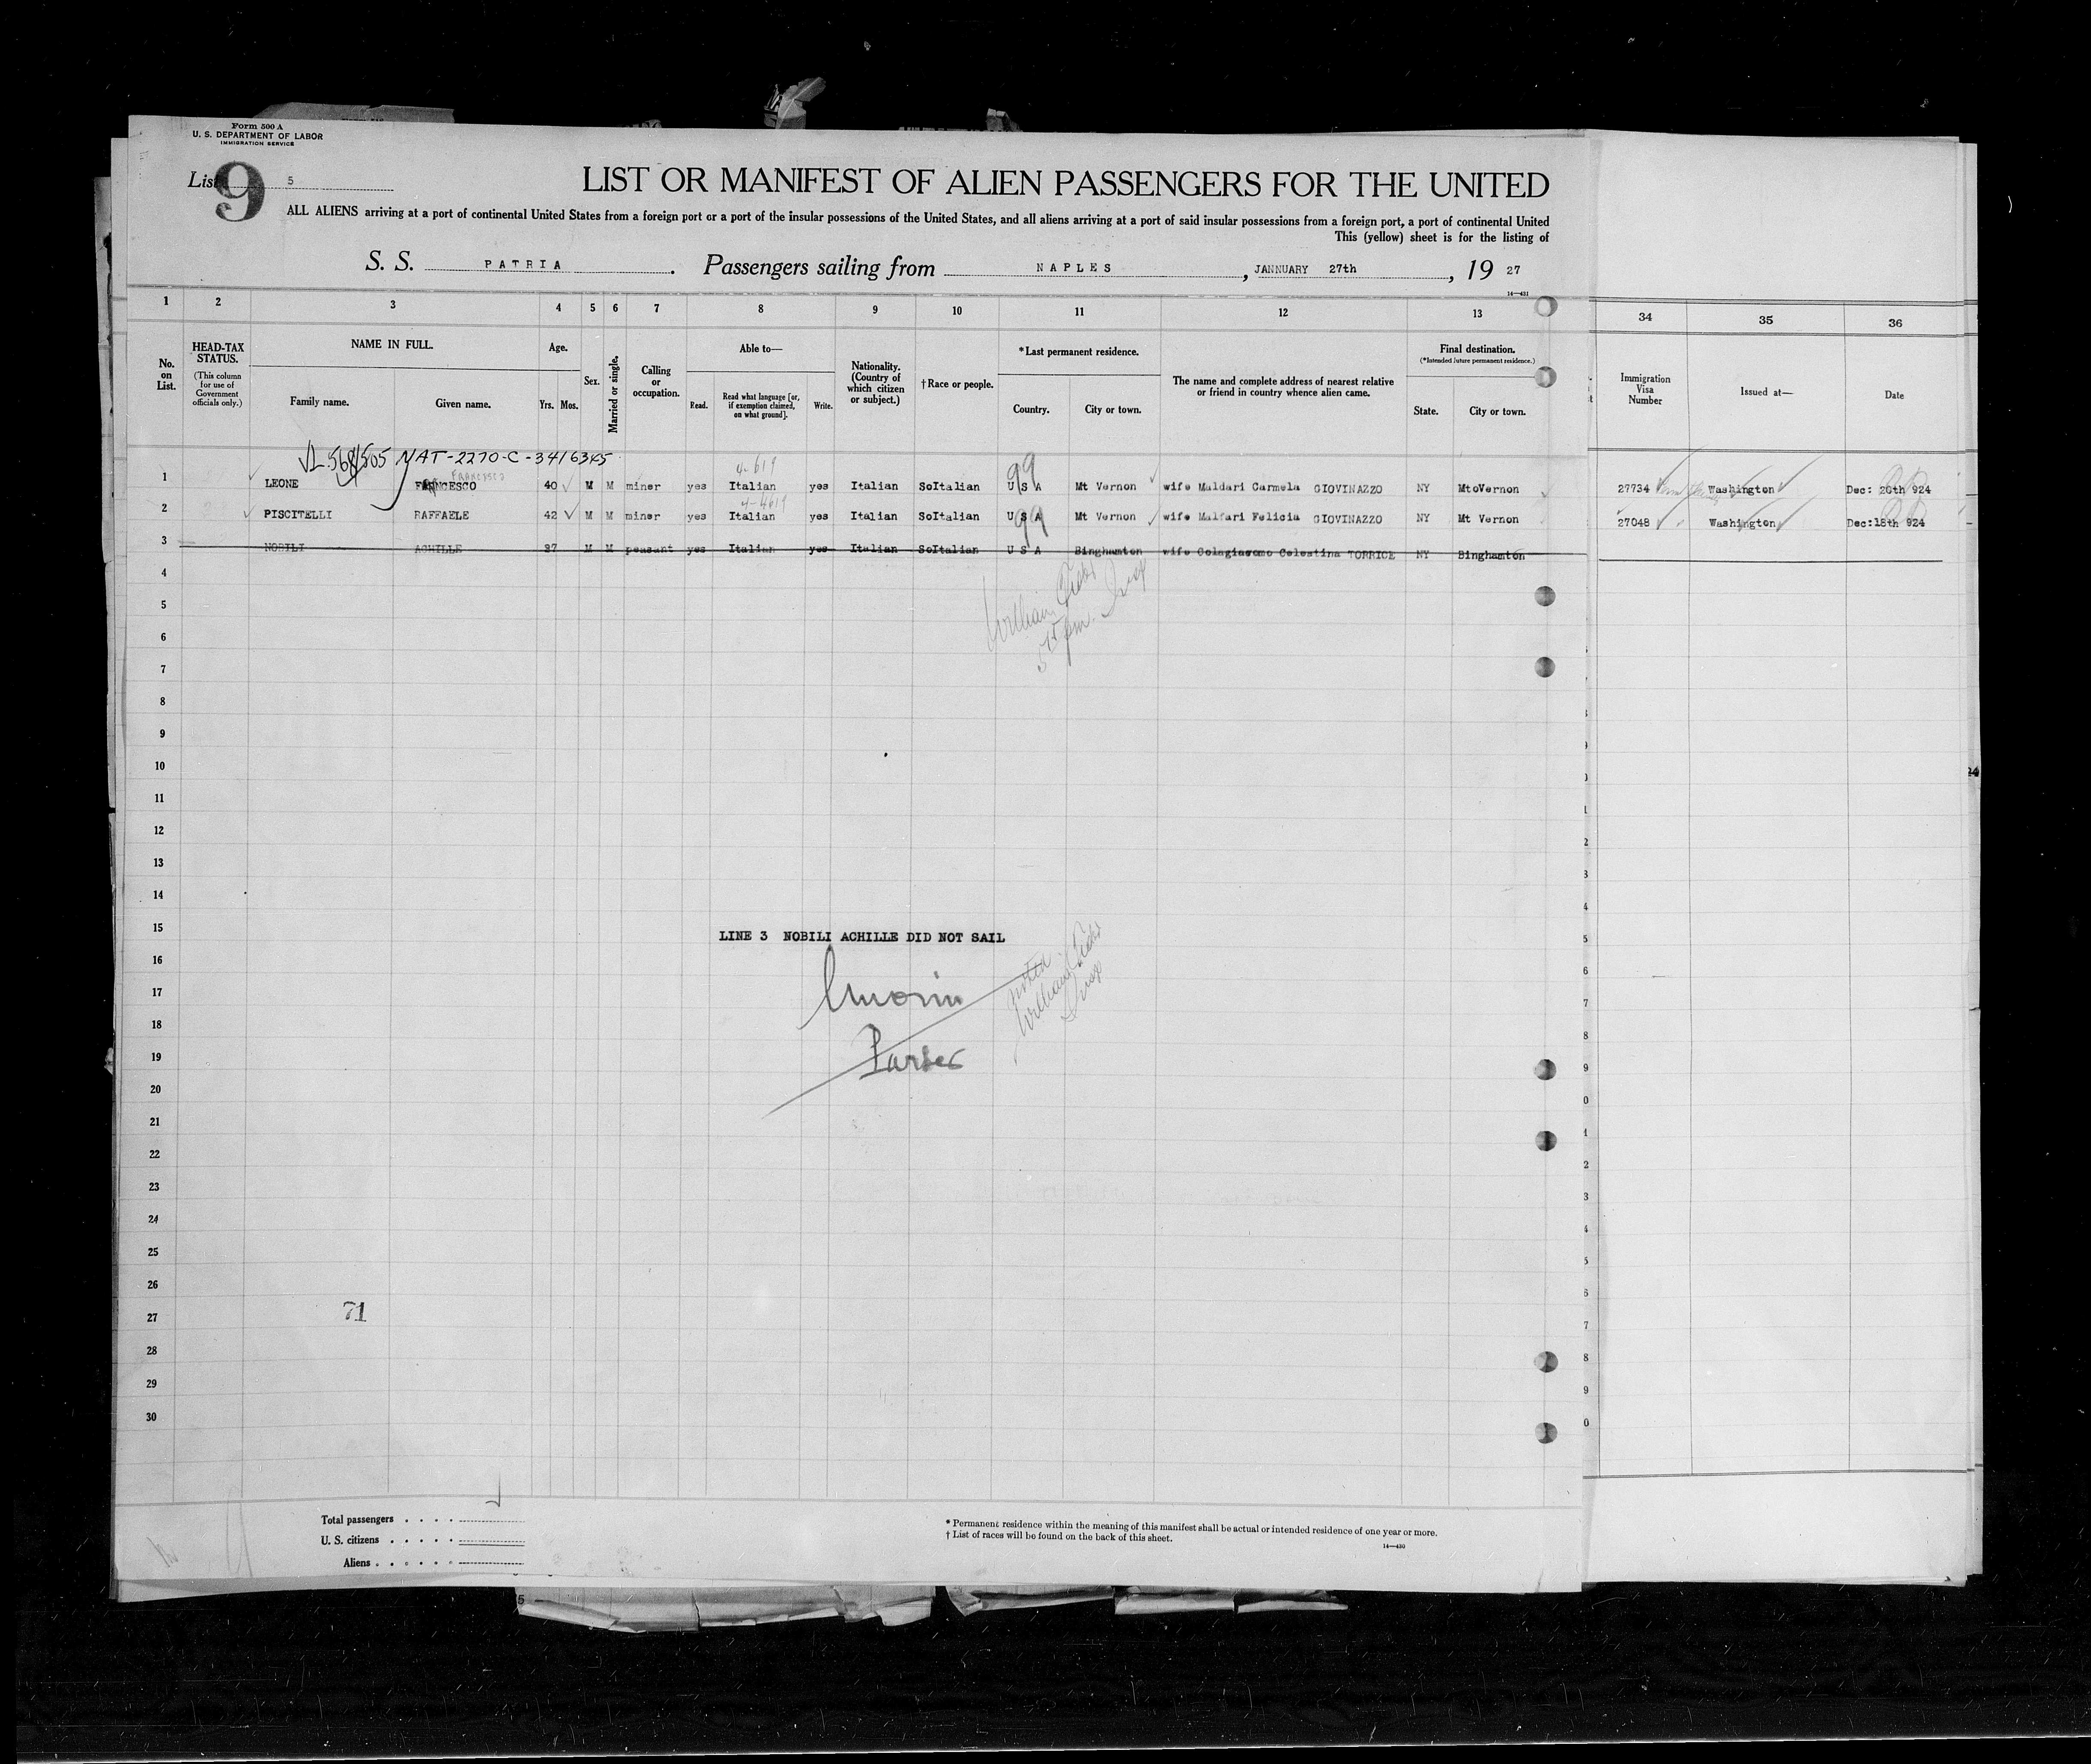 Form 500 A
U. S. DEPARTMENT OF LABOR
IMMIGRATION SERVICE
List 5
9
LIST OR MANIFEST OF ALIEN PASSENGERS FOR THE UNITED
ALL ALIENS arriving at a port of continental United States from a foreign port or a port of the insular possessions of the United States, and all aliens arriving at a port of said insular possessions from a foreign port, a port of continental United
This (yellow) sheet is for the listing of
S. S. PATRIA. Passengers sailing from NAPLES, JANNUARY 27th, 19 27
14—431
1 2 3 4 5 6 7 8 9 10 11 12 13 34 35 36
No. on List.
HEAD-TAX STATUS.
(This column for use of Government officials only.)
NAME IN FULL.
Family name. Given name.
Age.
Yrs. Mos.
Sex.
Married or single.
Calling or occupation.
Able to—
Read. Read what language [or, if exemption claimed, on what ground]. Write.
Nationality. (Country of which citizen or subject.)
†Race or people.
*Last permanent residence.
Country. City or town.
The name and complete address of nearest relative or friend in country whence alien came.
Final destination.
(*Intended future permanent residence.)
State. City or town.
Immigration Visa Number
Issued at—
Date
NAT-2270-C-3416345
FRANCESCO
4-619
99
1 LEONE FRANCESCO 40 M M miner yes Italian yes Italian SoItalian U S A Mt Vernon wife Maldari Carmela GIOVINAZZO NY MtoVernon 27734 Washington Dec: 20th 924
4-4619
99
2 PISCITELLI RAFFAELE 42 M M miner yes Italian yes Italian SoItalian U S A Mt Vernon wife Malfari Felicia GIOVINAZZO NY Mt Vernon 27048 Washington Dec:18th 924
3 NOBILI ACHILLE 37 M M peasant yes Italian yes Italian SoItalian U S A Binghamton wife Colagiacomo Celestina TORRICE NY Binghamton
4
5
6
7
8
9
10
11
12
13
14
15
LINE 3 NOBILI ACHILLE DID NOT SAIL
16
17
18
19
Purser
noted
William
20
21
22
23
24
25
26
27
71
28
29
30
Total passengers
U. S. citizens
Aliens
* Permanent residence within the meaning of this manifest shall be actual or intended residence of one year or more.
† List of races will be found on the back of this sheet.
14—430